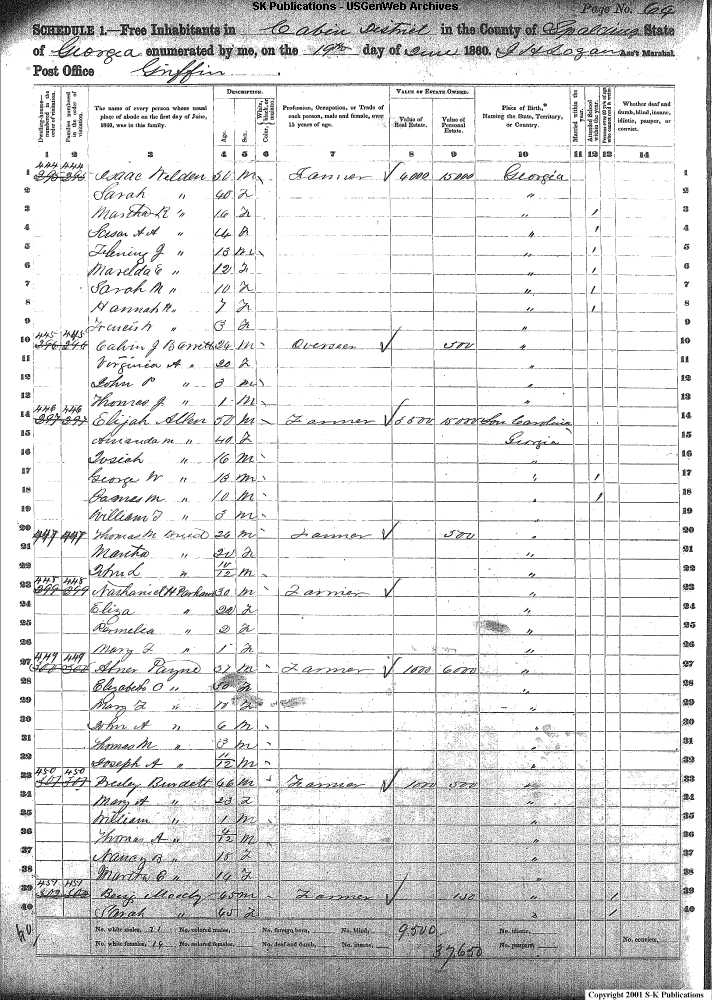 SK Publications - USGenWeb Archives
Page No. 64
SCHEDULE 1.—Free Inhabitants in Cabin District in the County of Spalding State
of Georgia enumerated by me, on the 19th day of June 1860. Ass't Marshal.
Post Office Griffin
Dwelling-houses numbered in the order of visitation.
Families numbered in the order of visitation.
The name of every person whose usual place of abode on the first day of June, 1860, was in this family.
DESCRIPTION.
Age.
Sex.
Color, White, black, or mulatto.
Profession, Occupation, or Trade of each person, male and female, over 15 years of age.
VALUE OF ESTATE OWNED.
Value of Real Estate.
Value of Personal Estate.
Place of Birth, Naming the State, Territory, or Country.
Married within the year.
Attended School within the year.
Whether deaf and dumb, blind, insane, idiotic, pauper, or convict.
1 2 3 4 5 6 7 8 9 10 11 12 13 14
1 444 444 Isaac Welden 50 M Farmer 4000 15000 Georgia 1
2 Sarah " 40 F " 2
3 Martha R " 16 F " / 3
4 " 14 " / 4
5 J " 13 M " / 5
6 " 12 F " / 6
7 Sarah M " 10 F " / 7
8 Hannah " 7 F " / 8
9 Francis " 3 F " 9
10 445 445 Calvin J 24 M Overseer 500 " 10
11 Virginia A " 20 F " 11
12 John P " 3 M " 12
13 Thomas J " 1 M " 13
14 446 446 Elijah Allen 50 M Farmer 3500 15000 Sou Carolina 14
15 Amanda M " 40 F Georgia 15
16 Josiah " 16 M " 16
17 George W " 13 M " / 17
18 James M " 10 M " / 18
19 William T " 3 M " 19
20 447 447 Thomas M 26 M Farmer 500 " 20
21 Martha " 20 F " 21
22 John L " 10/12 M " 22
23 448 448 Nathaniel H Parham 30 M Farmer " 23
24 Eliza " 20 F " 24
25 Permelia " 2 F " 25
26 Mary F " 1 F " 26
27 449 449 Abner Payne 37 M Farmer 1000 6000 " 27
28 Elizabeth O " 30 F " 28
29 Mary F " 10 F " 29
30 John A " 6 M " 30
31 Thomas M " 3 M " 31
32 Joseph A " M " 32
33 450 450 Presley Burdett 66 M Farmer 1000 500 " 33
34 Mary A " 23 F " 34
35 William " 1 M " 35
36 Thomas A " 4/12 M " 36
37 Nancy B " 18 F " 37
38 Martha E " 14 F " 38
39 451 451 Benj Moody 65 M Farmer 150 " / 39
40 Sarah " 65 F " / 40
No. white males, 21 No. colored males, No. foreign born, No. blind, 9500 No. idiotic,
No. white females, 19 No. colored females, No. deaf and dumb, No. insane, 37,650 No. paupers, No. convicts,
Copyright 2001 S-K Publications